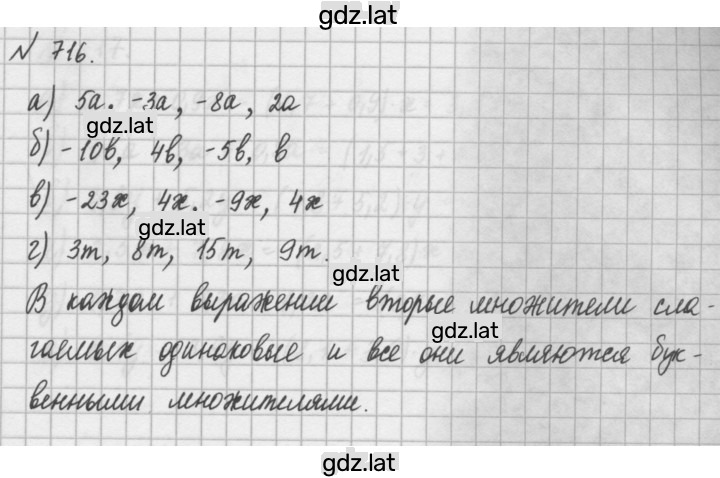 gdz.lat
N 716.
а) 5а. -3а, -8а, 2а
gdz.lat
б) -10в, 4в, -5в, в
в) -23х, 4х. -9х, 4х
gdz.lat
г) 3m, 8m, 15m, 9m.
gdz.lat
В каждом выражении вторые множители сла-
gdz.lat
гаемых одинаковые и все они являются бук-
венными множителями.
gdz.lat